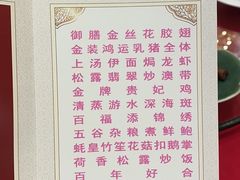 御膳金丝花胶翅
金装鸿运乳猪全体
上汤伊面焗龙虾
松露翡翠炒澳带
金牌贵妃鸡
清蒸游水深海斑
百福添锦绣
五谷杂粮煮鲜鲍
蚝皇竹笙花菇扣鹅掌
荷香松露炒饭
百年好合